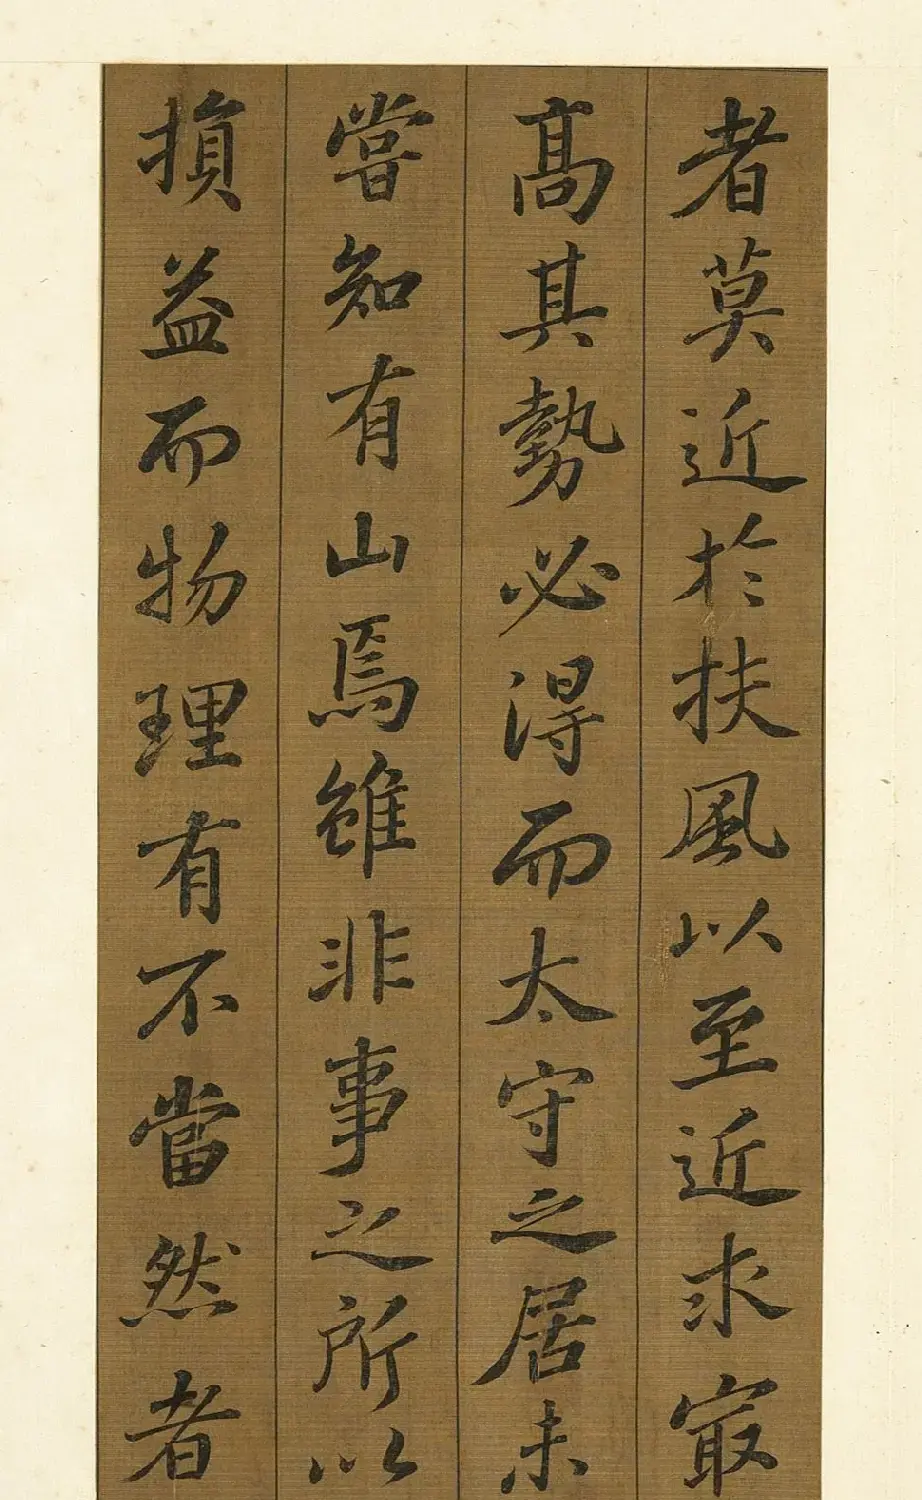 者莫近於扶風以至近求冣
髙其勢必得而太守之居未
嘗知有山焉雖非事之所以
損益而物理有不當然者